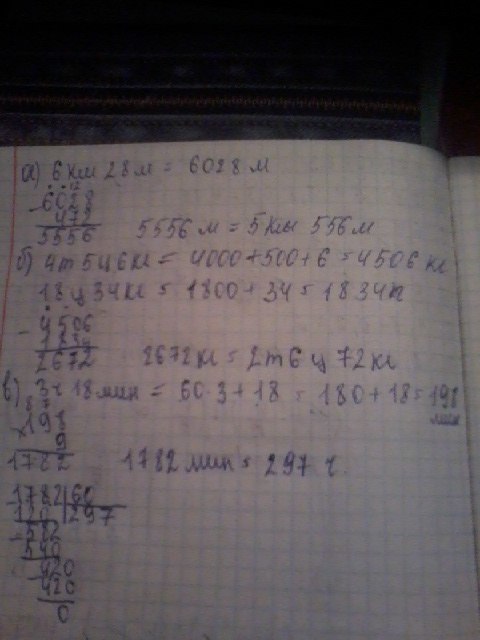 а) 6 км 28 м = 6028 м
- 6028
472
5556 5556 м = 5 км 556 м
б) 4т 5ц 6кг = 4000+500+6=4506 кг
18 ц 34 кг = 1800 + 34 = 1834
- 4506
2672 2672 кг = 2т 6 ц 72 кг
в) 3ч 18 мин = 60·3+18 = 180+18=198 мин
×198
9
1782 1782 мин = 297 ч.
-1782|60
297
540
-420
420
0